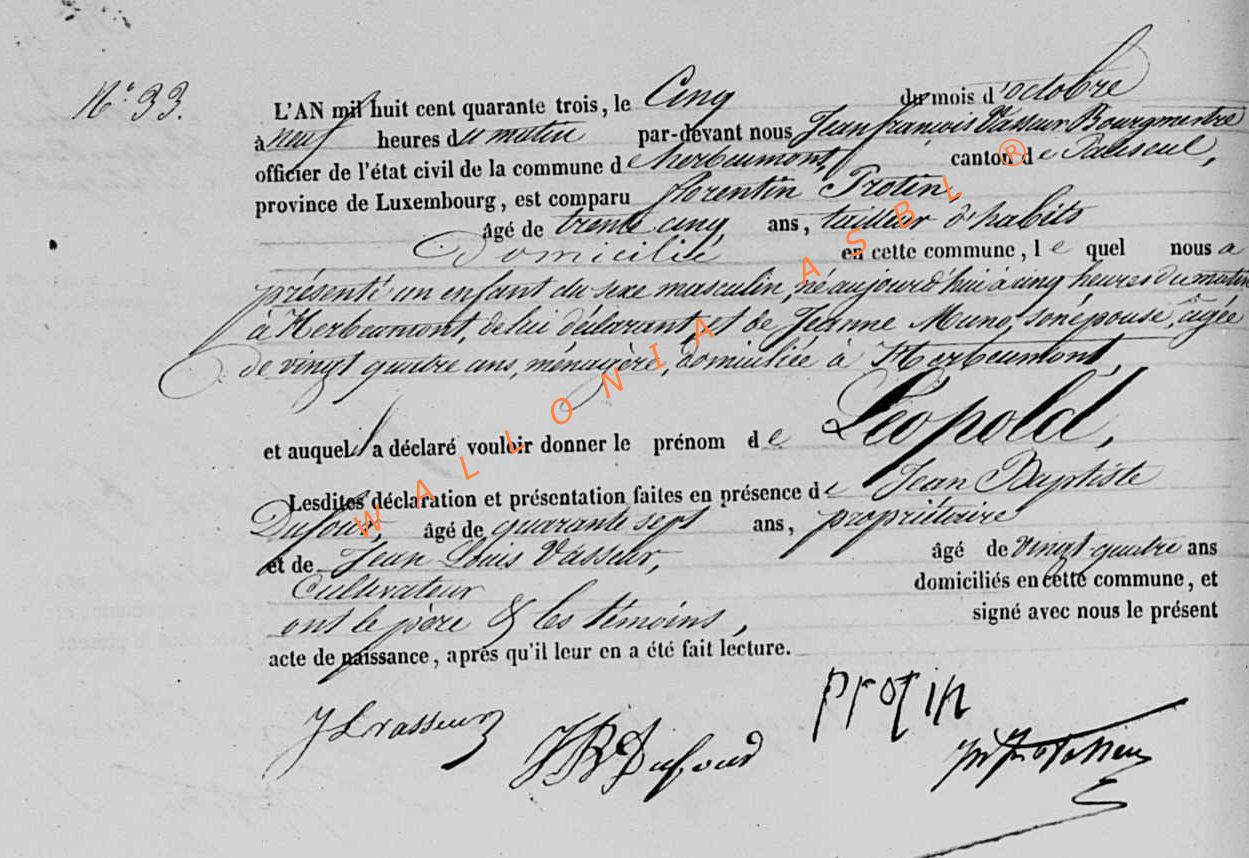 N° 33.
L'AN mil huit cent quarante trois, le Cinq du mois d'octobre
à neuf heures du matin par-devant nous Jean françois Vasseur Bourgmestre
officier de l'état civil de la commune de herbeumont, canton de Paliseul,
province de Luxembourg, est comparu florentin Protin,
âgé de trente cinq ans, tailleur d'habits
Domicilié en cette commune, lequel nous a
présenté un enfant du sexe masculin, né aujourd'hui à cinq heures du matin
à Herbeumont, de lui déclarant, et de Jeanne Muno, son épouse, agée
de vingt quatre ans, ménagère, domiciliée à Herbeumont,
et auquel il a déclaré vouloir donner le prénom de Léopold,
Lesdites déclaration et présentation faites en présence de Jean Baptiste
Dufour, âgé de quarante sept ans, propriétaire
et de Jean Louis Vasseur, âgé de vingt quatre ans
Cultivateur domiciliés en cette commune, et
ont le père & les témoins, signé avec nous le présent
acte de naissance, après qu'il leur en a été fait lecture.
J L vasseur
JB Dufour
protin
WALLONIA ASBL ®